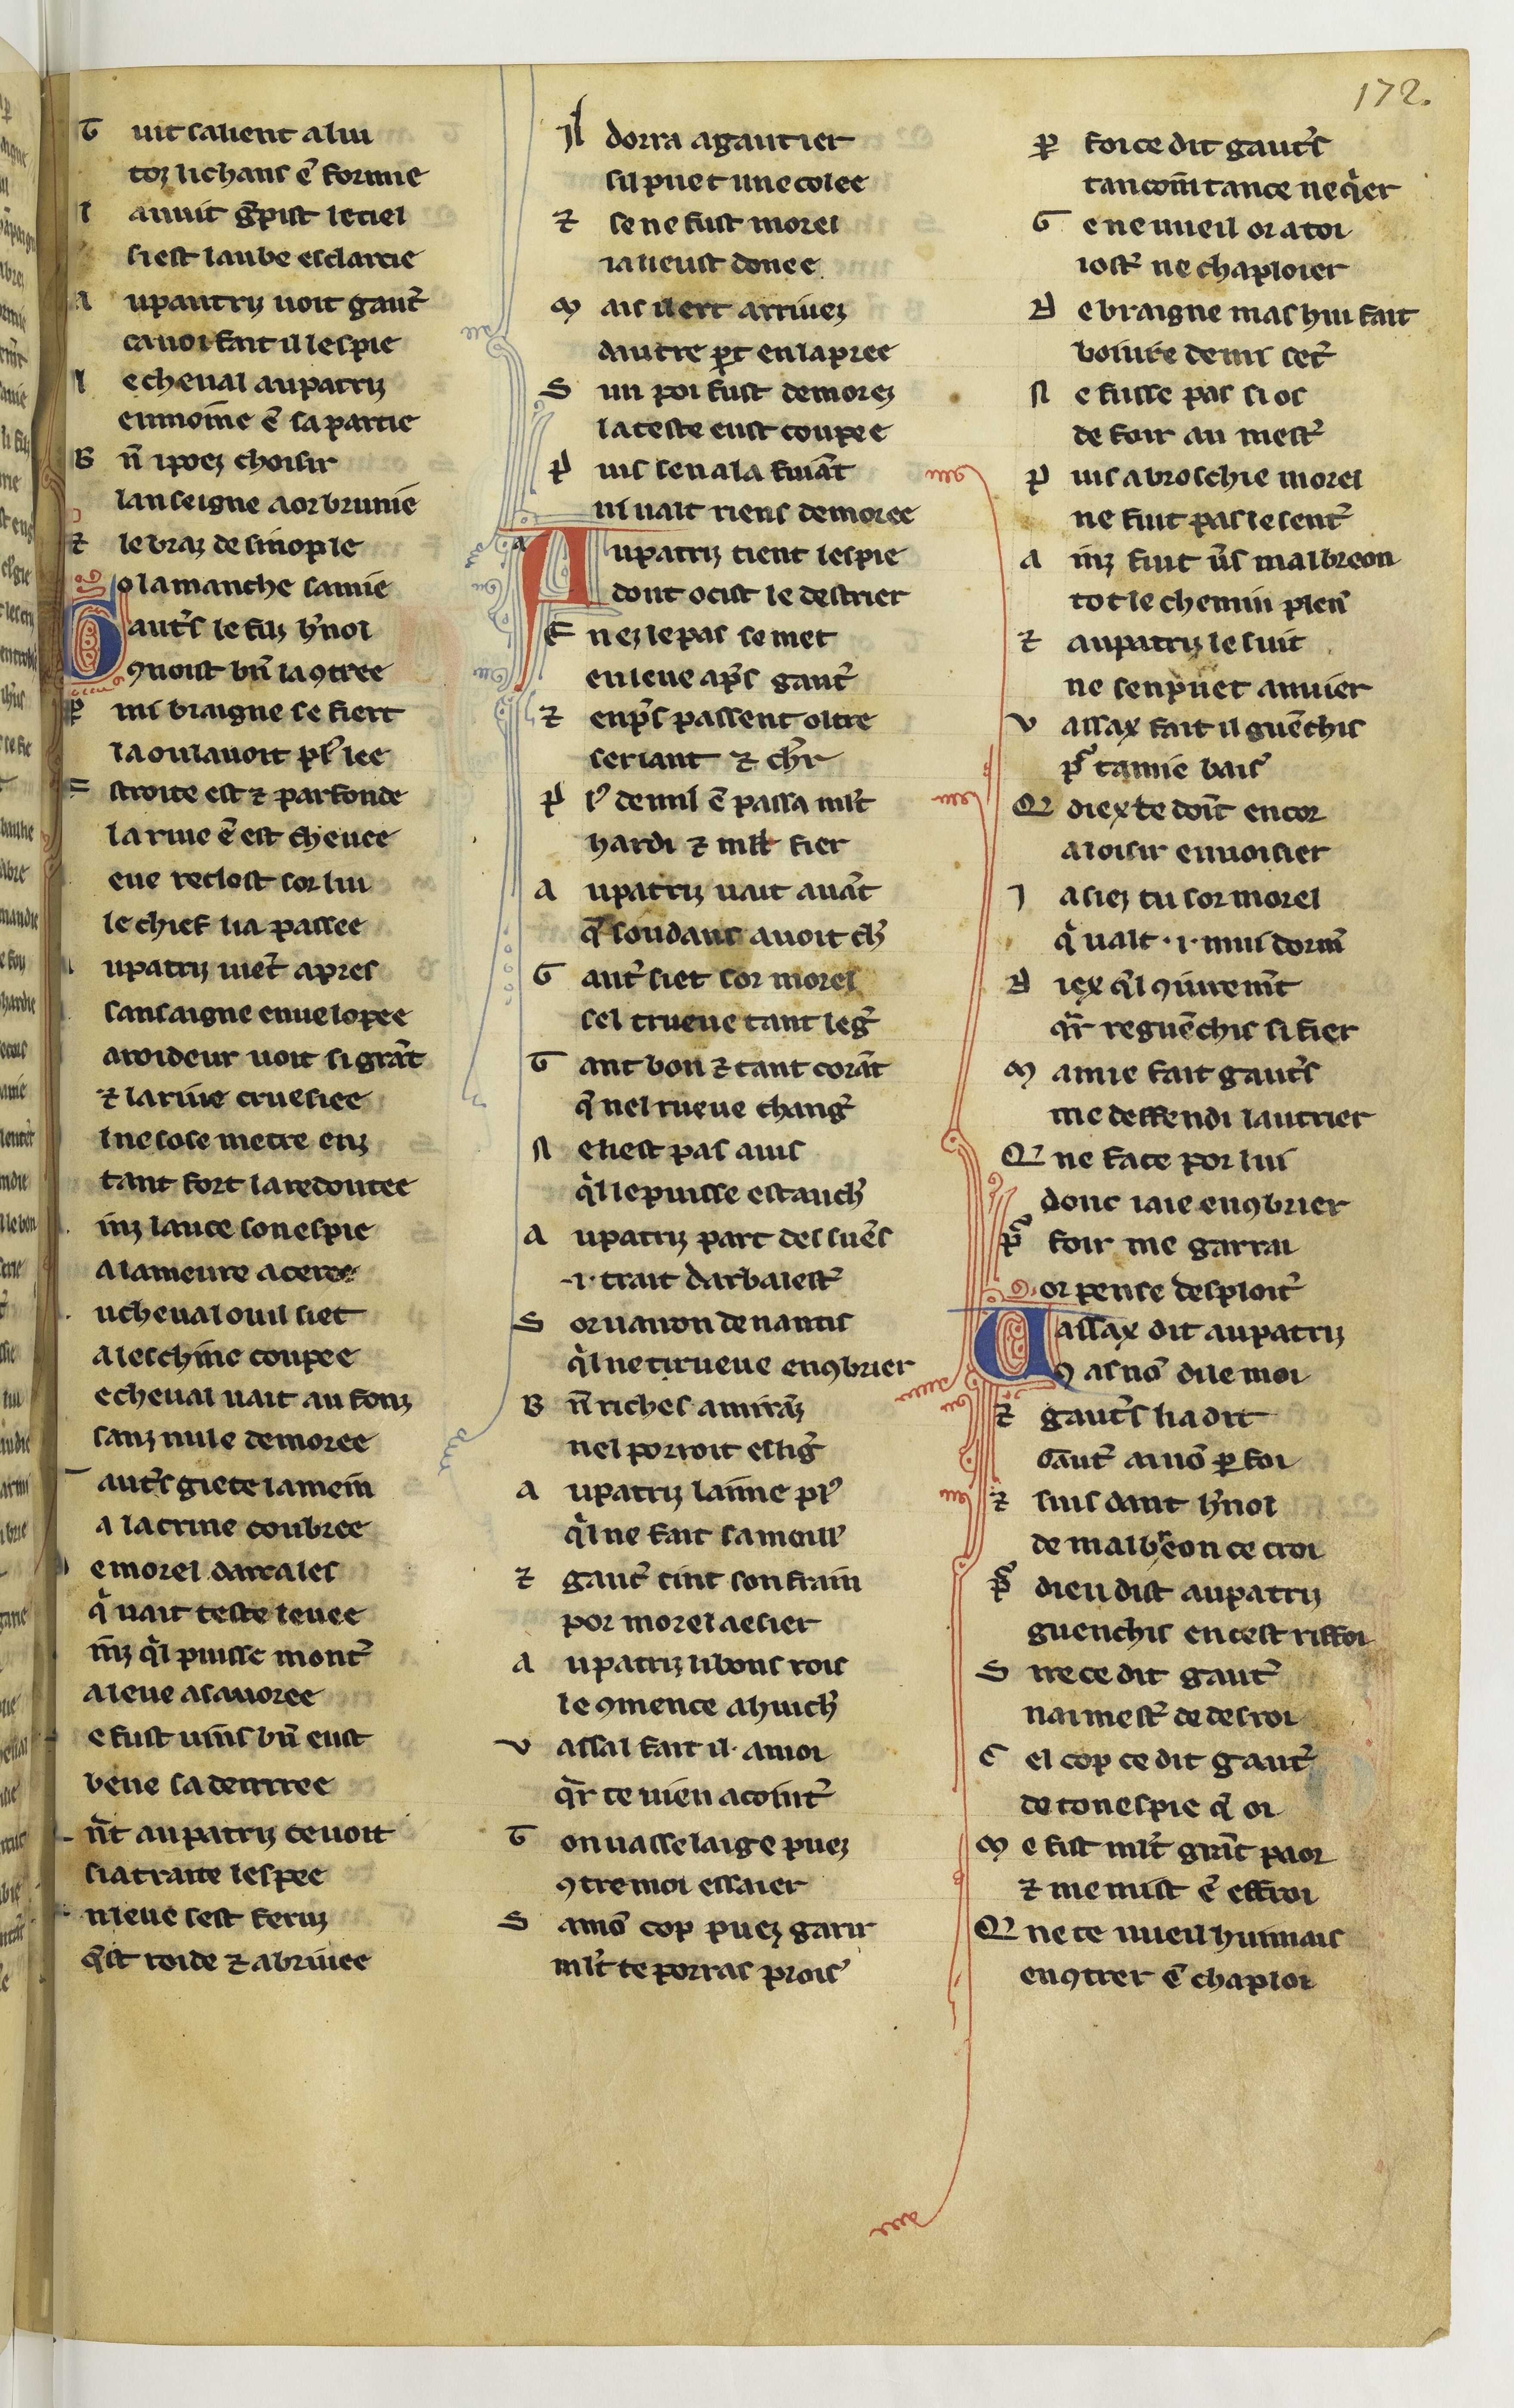 172.
T uit salient a lui
toz li chans ẽ formie
l anuit g̃pist le ciel
si est laube esclarcie
a upatriz uoit gaut̃
ca uoi fait il lespie
l e cheual aupatriz
enmoine ẽ sa partie
B ñ i poez choisir
lanseigne a or brunie
⁊ le braz de sinople
o la manche samie
Gaut̃s le fiuz h̃noi
ꝯnoist bñ la ꝯtree
p mi braigne se fiert
la ou lauoit pl᷒ lee
E stroite est ⁊ parfonde
la riue ẽ est cheuee
eue reclost sor lui
le chief li a passee
upatriz uiet̃ apres
sansaigne enuelopee
aroideur uoit si grãt
⁊ la riuie cruesiee
l ne lose metre enz
tant fort la redoutee
inz lance son espie
a la meure aceree
u cheual ou il siet
a leschine coupee
e cheual uait au fonz
sanz nule demoree
aut̃s giete la mein
a la crine coubree
e morel darcales
q̇ uait teste leuee
inz q̇l puisse mont̃
a leue asauoree
e fust uins bñ eust
beue sa dentree
ñt aupatriz ce uoit
si a traite lespee
n leue sest feruz
q̃st roide ⁊ abriuee
Il dorra a gautier
sil puet une colee
⁊ se ne fust morel
ia li eust donee
m ais il ert arriuez
dautre ꝑt en la pree
S un poi fust demorez
la teste eust coupee
p uis sen ala fuiãt
ni uait riens demoree
Aupatriz tient lespie
dont ocist le destrier
E nez le pas se met
en leue ap̃s gaut̃
⁊ enp̃s passent oltre
seriant ⁊ ch̃r
p l᷒ de mil ẽ passa ml̃t
hardi ⁊ ml̃t fier
a upatriz uait auãt
q̃ soudans auoit ch̃
G aut̃ siet sor morel
sel trueue tant leg̃
T ant bon ⁊ tant corãt
q̃ nel rueue chang̃
n e li est pas auis
q̇l le puisse estanch̃
a upatriz part des suẽs
.i. trait darbalest̃
S or uairon de nantis
q̇l ne tirueue enꝯbrier
B ñ riches amirãz
nel porroit eslig̃
a upatriz laime pl᷒
q̇l ne fait sa moill᷒
⁊ gaut̃ tint son frain
por morel aesier
a upatriz li bons rois
le ꝯmence a huich̃
v assal fait il a moi
q̃r te uien acoint̃
T on uasselaige puez
ꝯtre moi essaier
S a mõ cop puez garir
ml̃t te porras prois᷒
ꝑ foi ce dit gaut̃s
tacointance ne q̇er
G e ne uueil or a toi
iost̃ ne chaploier
D e braigne mas hui fait
boiure de mi set̃
n e fusse pas si os
de foir au mest̃
p uis a broschie morel
ne fuit pas le sent̃
a inz fuit ũs malbreon
tot le chemin plen̄
⁊ aupatriz le suit
ne sen puet anuier
v assax fait il guẽchis
p̃ tamie bais᷒
Q diex te doit encor
a loisir enuoisier
J a siez tu sor morel
q̇ ualt .i. mui dorm̃
D iex q̇l ꝯuirem̃t
q̃r reguẽchis si fier
m amie fait gaut̃s
me deffendi lautrier
Q ne face por lui
donc iaie enꝯbrier
p̃ foir me garrai
or pense desploit̃
Vassax dit aupatriz
ꝯ as nõ di le moi
⁊ gaut̃s li a dit
Gaut̃ ai nõ ꝑ foi
⁊ suis dant h̃noi
de malbreon ce croi
p̃ dieu dist aupatriz
guenchis en cest riffoi
S ire ce dit gaut̃
nai mest̃ de desroi
C el cop ce dit gaut̃
de ton espie q̃ oi
m e fist ml̃t grãt paor
⁊ me mist ẽ effroi
Q ne te uueil huimais
enꝯtrer ẽ chaploi